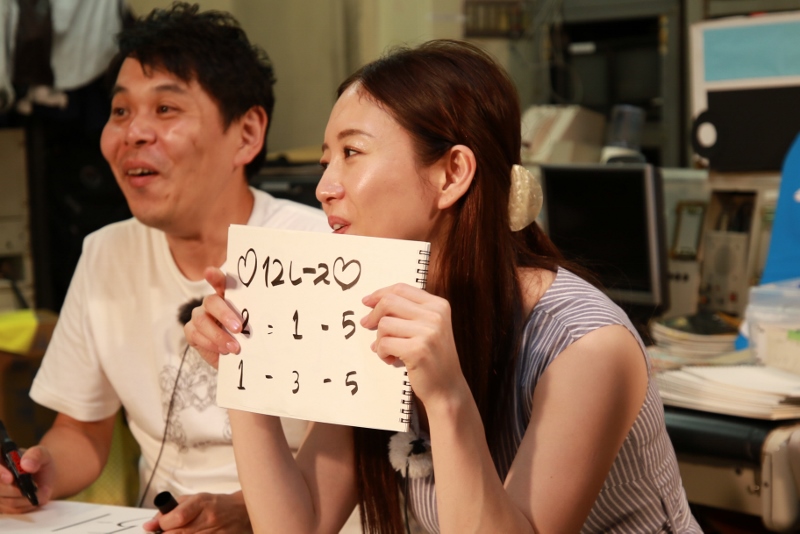 ♡12レース♡
2=1-5
1-3-5